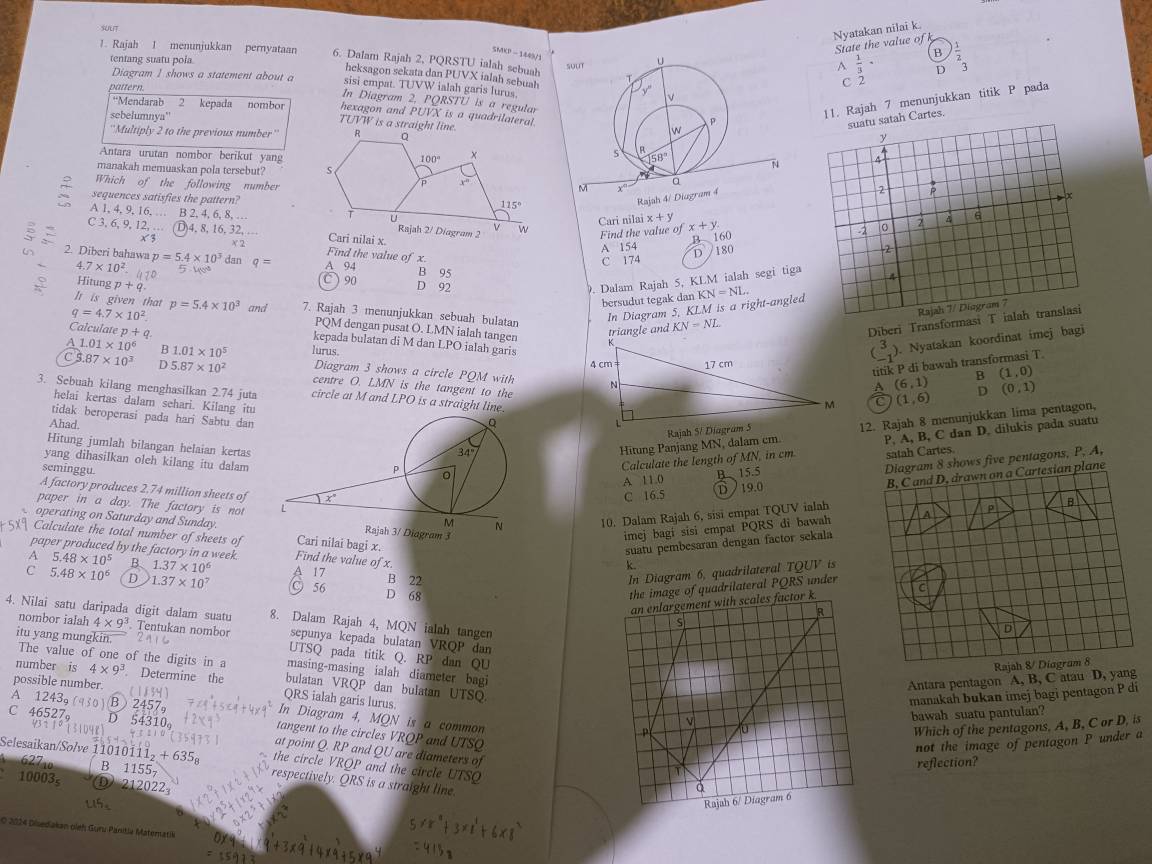 SULIT
1. Rajah 1 menunjukkan pernyataan
tentang suatu pola.
Diagram 1 shows a statement about a
pattern.
"Mendarab 2 kepada nombor
sebelumnya"
"Multiply 2 to the previous number"
Antara urutan nombor berikut yang
manakah memuaskan pola tersebut?
Which of the following number
sequences satisfies the pattern?
A 1, 4, 9, 16, … B 2, 4, 6, 8, …
C 3, 6, 9, 12, … D 4, 8, 16, 32, …
2. Diberi bahawa p = 5.4 × 10³ dan q =
4.7 × 10².
Hitung p + q.
It is given that p = 5.4 × 10³ and
q = 4.7 × 10².
Calculate p + q.
A 1.01 × 10⁶ B 1.01 × 10⁵
C 5.87 × 10³ D 5.87 × 10²
3. Sebuah kilang menghasilkan 2.74 juta
helai kertas dalam sehari. Kilang itu
tidak beroperasi pada hari Sabtu dan
Ahad.
Hitung jumlah bilangan helaian kertas
yang dihasilkan oleh kilang itu dalam
seminggu.
A factory produces 2.74 million sheets of
paper in a day. The factory is not
operating on Saturday and Sunday.
Calculate the total number of sheets of
paper produced by the factory in a week.
A 5.48 × 10⁵ B 1.37 × 10⁶
C 5.48 × 10⁶ D 1.37 × 10⁷
4. Nilai satu daripada digit dalam suatu
nombor ialah 4 × 9³. Tentukan nombor
itu yang mungkin. 2916
The value of one of the digits in a
number is 4 × 9³. Determine the
possible number.
A 1243₉ B 2457₉
C 46527₉ D 54310₉
Selesaikan/Solve 11010111₂ + 635₈
A 627₁₀ B 1155₇
C 10003₅ D 212022₃
© 2024 Disediakan oleh Guru Panitia Matematik
SMKP – 1449/1
6. Dalam Rajah 2, PQRSTU ialah sebuah
heksagon sekata dan PUVX ialah sebuah
sisi empat. TUVW ialah garis lurus.
In Diagram 2, PQRSTU is a regular
hexagon and PUVX is a quadrilateral.
TUVW is a straight line.
R Q
100° X
S P x°
115°
T U V W
Rajah 2/ Diagram 2
Cari nilai x.
Find the value of x.
A 94 B 95
C 90 D 92
7. Rajah 3 menunjukkan sebuah bulatan
PQM dengan pusat O. LMN ialah tangen
kepada bulatan di M dan LPO ialah garis
lurus.
Diagram 3 shows a circle PQM with
centre O. LMN is the tangent to the
circle at M and LPO is a straight line.
Q
34°
P O
x°
L M N
Rajah 3/ Diagram 3
Cari nilai bagi x.
Find the value of x.
A 17 B 22
C 56 D 68
8. Dalam Rajah 4, MQN ialah tangen
sepunya kepada bulatan VRQP dan
UTSQ pada titik Q. RP dan QU
masing-masing ialah diameter bagi
bulatan VRQP dan bulatan UTSQ.
QRS ialah garis lurus.
In Diagram 4, MQN is a common
tangent to the circles VRQP and UTSQ
at point Q. RP and QU are diameters of
the circle VRQP and the circle UTSQ
respectively. QRS is a straight line.
SULIT
U
T y°
V
W P
S R 58°
N
M x° Q
Rajah 4/ Diagram 4
Cari nilai x + y
Find the value of x + y.
A 154 B 160
C 174 D 180
9. Dalam Rajah 5, KLM ialah segi tiga
bersudut tegak dan KN = NL.
In Diagram 5, KLM is a right-angled
triangle and KN = NL.
K
4 cm 17 cm
N
M
L
Rajah 5/ Diagram 5
Hitung Panjang MN, dalam cm.
Calculate the length of MN, in cm.
A 11.0 B 15.5
C 16.5 D 19.0
10. Dalam Rajah 6, sisi empat TQUV ialah
imej bagi sisi empat PQRS di bawah
suatu pembesaran dengan factor sekala
k.
In Diagram 6, quadrilateral TQUV is
the image of quadrilateral PQRS under
an enlargement with scales factor k.
S R
V
P U
T
Q
Rajah 6/ Diagram 6
Nyatakan nilai k.
State the value of k
A 1/3 B 1/2
C 2 D 3
11. Rajah 7 menunjukkan titik P pada
suatu satah Cartes.
y
4
2 P
x
-2 0 2 4 6
-2
-4
Rajah 7/ Diagram 7
Diberi Transformasi T ialah translasi
(3 -1). Nyatakan koordinat imej bagi
titik P di bawah transformasi T.
A (6, 1) B (1, 0)
C (1, 6) D (0, 1)
12. Rajah 8 menunjukkan lima pentagon,
P, A, B, C dan D, dilukis pada suatu
satah Cartes.
Diagram 8 shows five pentagons, P, A,
B, C and D, drawn on a Cartesian plane
A P B
C
D
Rajah 8/ Diagram 8
Antara pentagon A, B, C atau D, yang
manakah bukan imej bagi pentagon P di
bawah suatu pantulan?
Which of the pentagons, A, B, C or D, is
not the image of pentagon P under a
reflection?